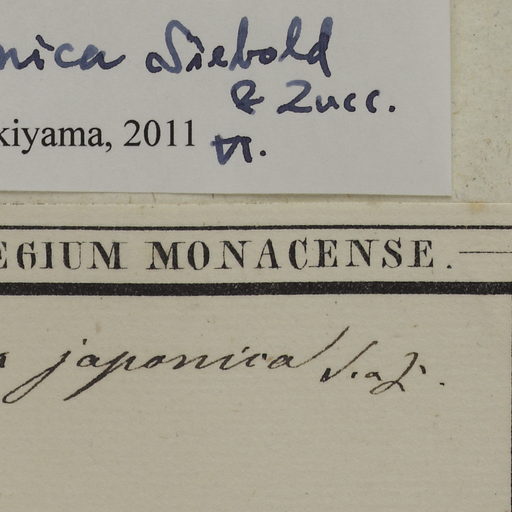 nica Siebold
& Zucc.
kiyama, 2011 VI.
EGIUM MONACENSE.
japonica S. a Z.